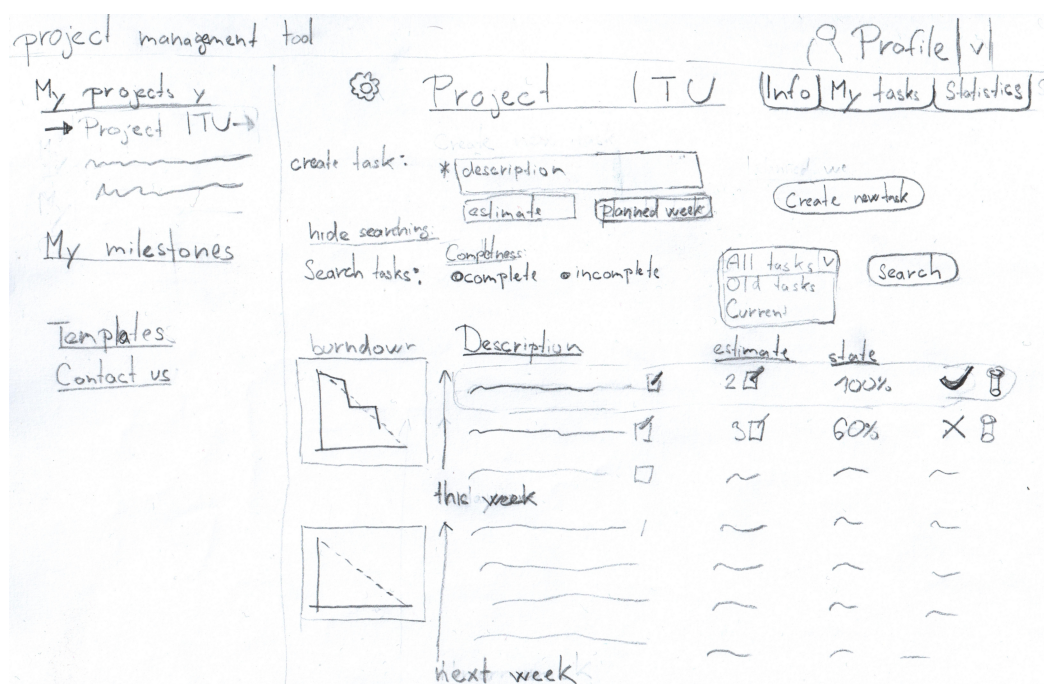 project management tool
Profile v
My projects v
Project ITU
My milestones
Templates
Contact us
Project ITU
Info My tasks Statistics
create task:
* description
estimate planned week
Create new task
hide searching:
Search tasks:
Completness:
complete incomplete
All tasks v
Old tasks
Current
Search
burndown
Description estimate state
2 100%
3 60%
this week
next week